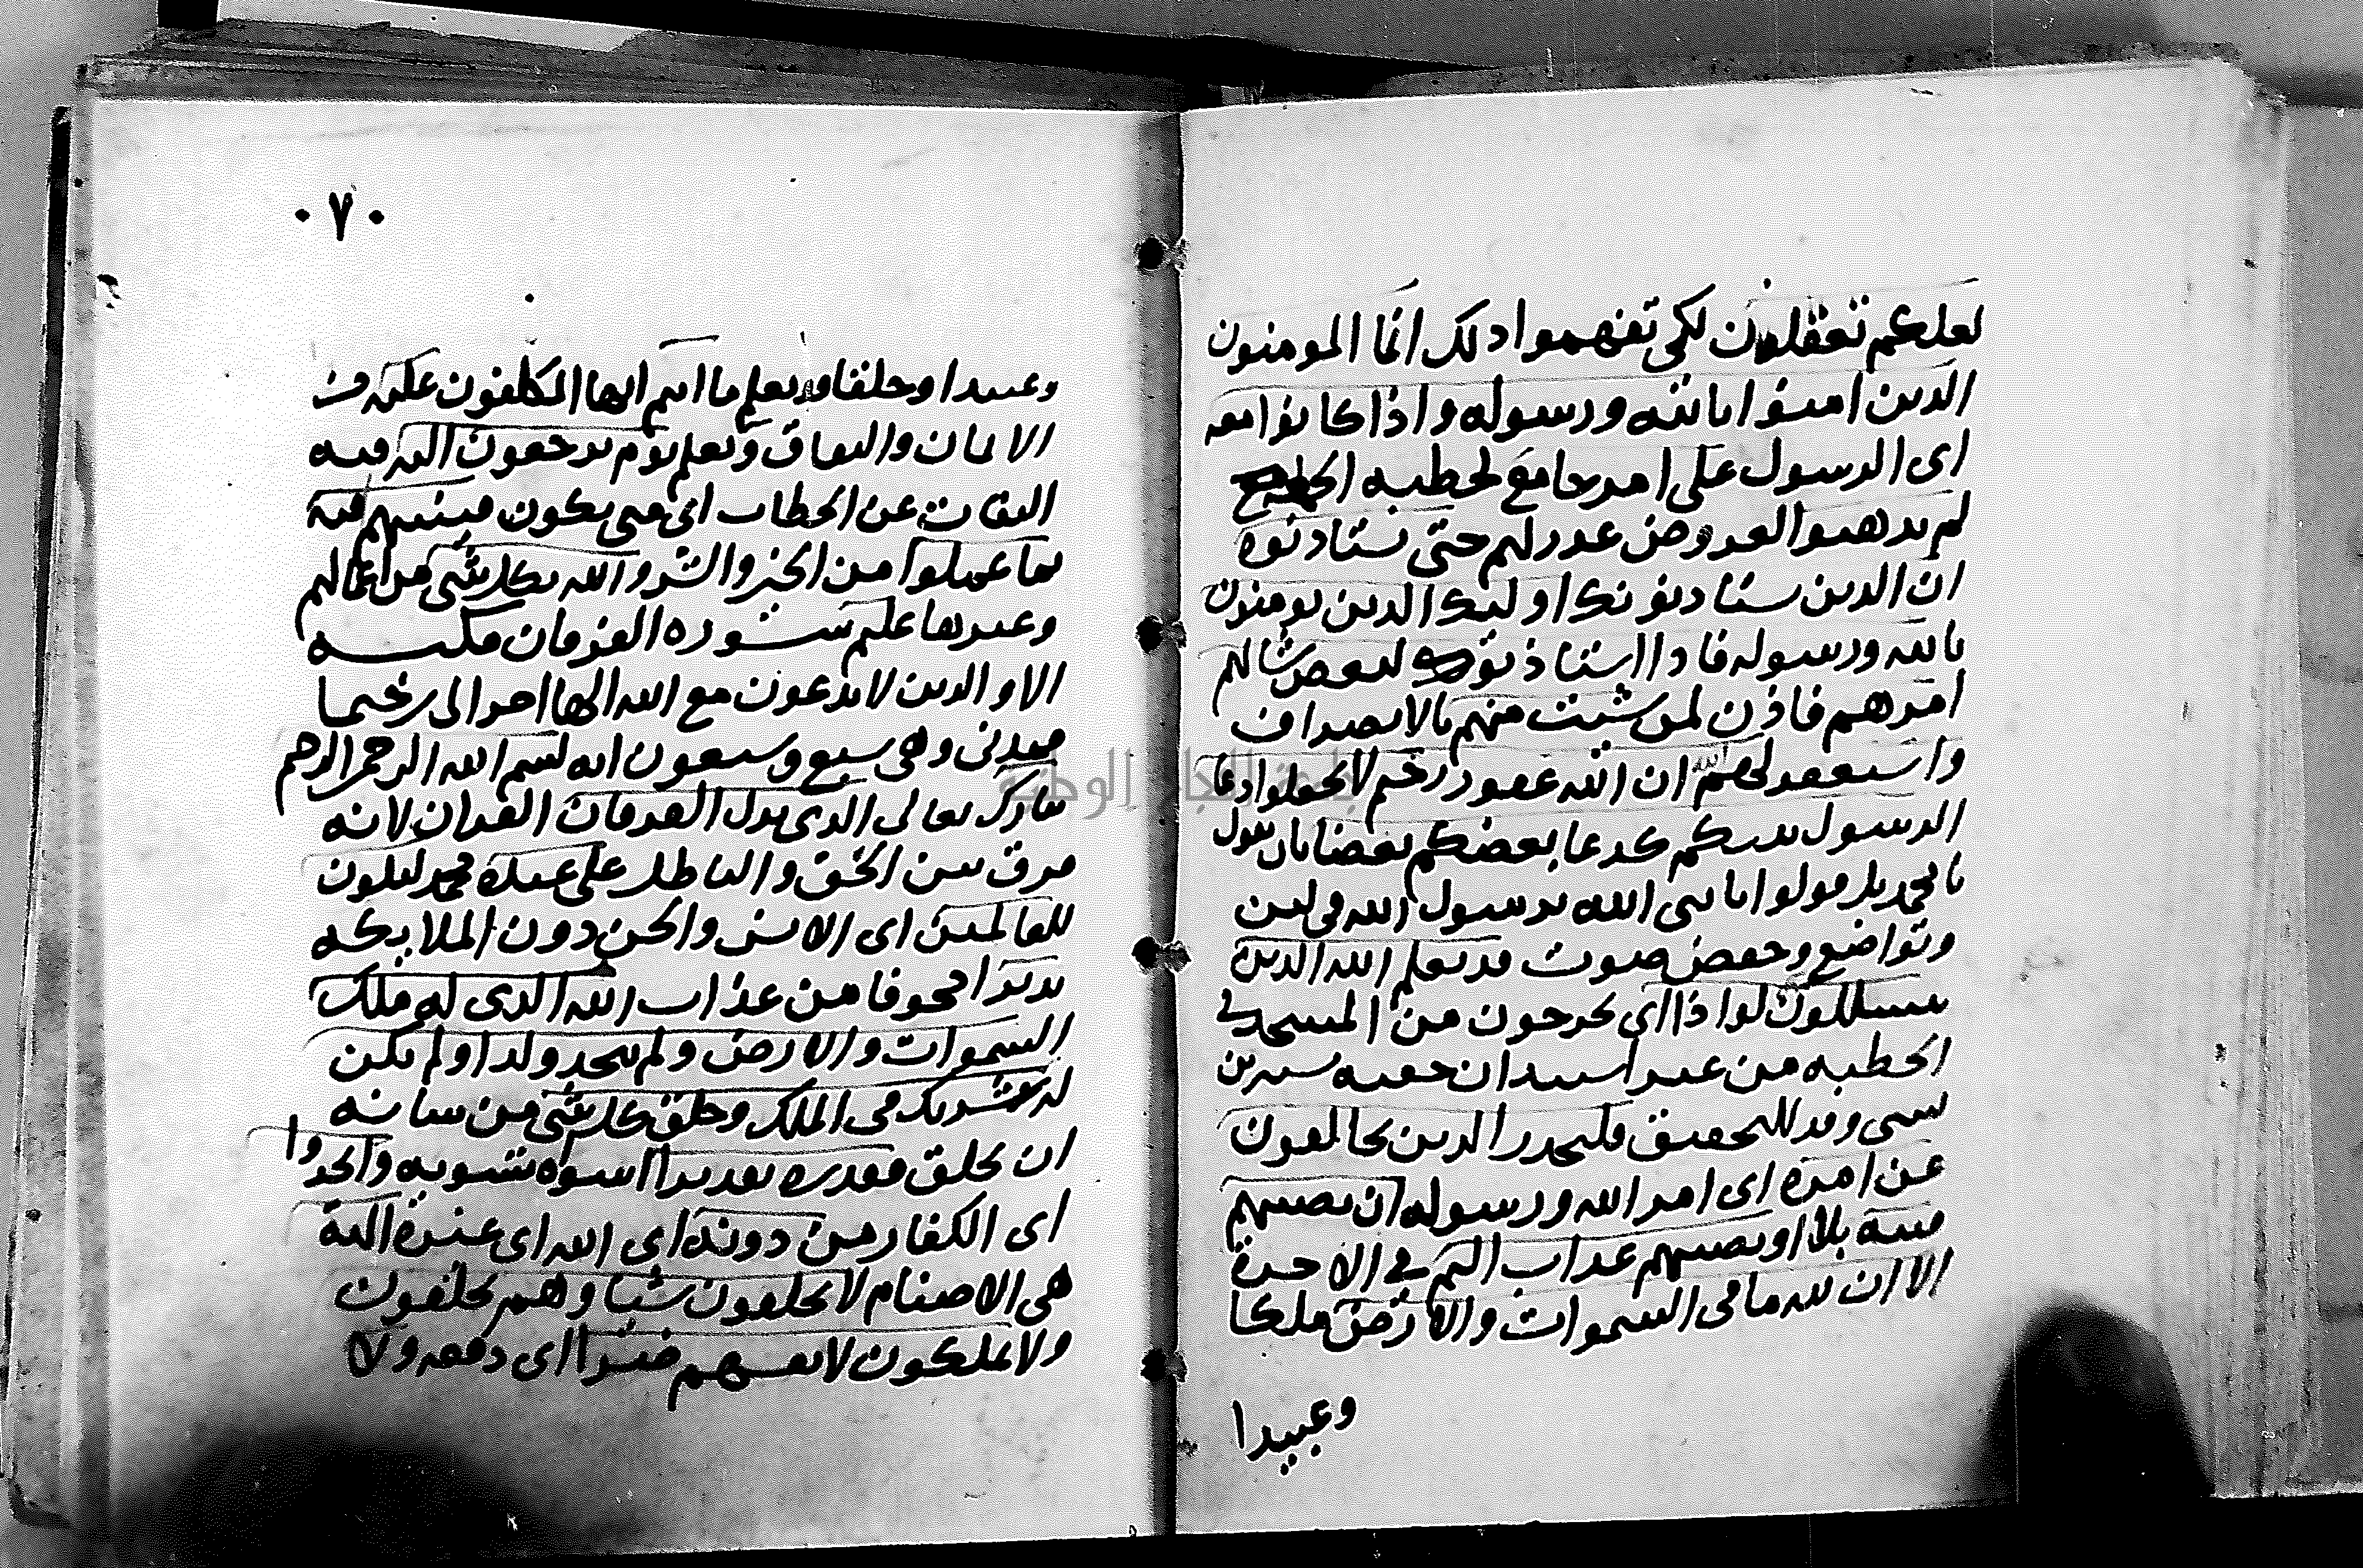 لعلكم تعقلون لكي تفهموا دلك انما المومنون
الدين امنوا بالله ورسوله واذا كانوا معه
اى الرسول على امر جامع لخطبه
لم يدهبوا لعروض عدر لهم حتى يستادنوه
ان الدين يستادنونك اوليك الدين يومنون
بالله ورسوله فادا استاذنوك لبعض شانهم
امرهم فاذن لمن شيت منهم بالانصراف
واستغفر لهم الله ان الله غفور رحيم لا تجعلوا دعا
الرسول بينكم كدعا بعضكم بعضا بان تقول
يا محمد بل قولوا يا نبي الله يرسول الله في لين
وتواضع وخفض صوت قد يعلم الله الدين
يتسللون لواذا اى يخرجون من المسجد في
الخطبه من غير استيدان خفيه مستترين
بشي وقد للتحقيق فليحدر الدين يخالفون
عن امره اى امر الله ورسوله ان تصيبهم
فتنة بلا او يصيبهم عداب اليم في الاخرة
الا ان لله ما في السموات والارض ملكا
وعبيدا
٠٧٠
وعبيدا وخلقا قد يعلم ما انتم ايها المكلفون عليه من
الايمان والنفاق ويعلم يوم يرجعون اليه فيه
التفات عن الخطاب اى متى يكون فينبيهم فيه
بما عملوا من الخير والشر والله بكل شي من اعمالهم
وغيرها عليم سورة الفرقان مكيه
الا والدين لا يدعون مع الله الها اخر الى رحيما
فمدني وهي سبع وسبعون ايه بسم الله الرحمن الرحيم
تبارك تعالى الدى نزل الفرقان القران لانه
فرق بين الحق والباطل على عبده محمد ليكون
للعالمين اى الانس والجن دون الملايكه
نديرا مخوفا من عذاب الله الدى له ملك
السموات والارض ولم يتخد ولدا ولم يكن
له شريك في الملك وخلق كل شي من شانه
ان يخلق فقدره تقديرا سواه تسويه واتخدوا
اى الكفار من دونه اى الله اى غيره الهة
هي الاصنام لا يخلقون شيا وهم يخلقون
ولا يملكون لانفسهم ضرا اى دفعه ولا